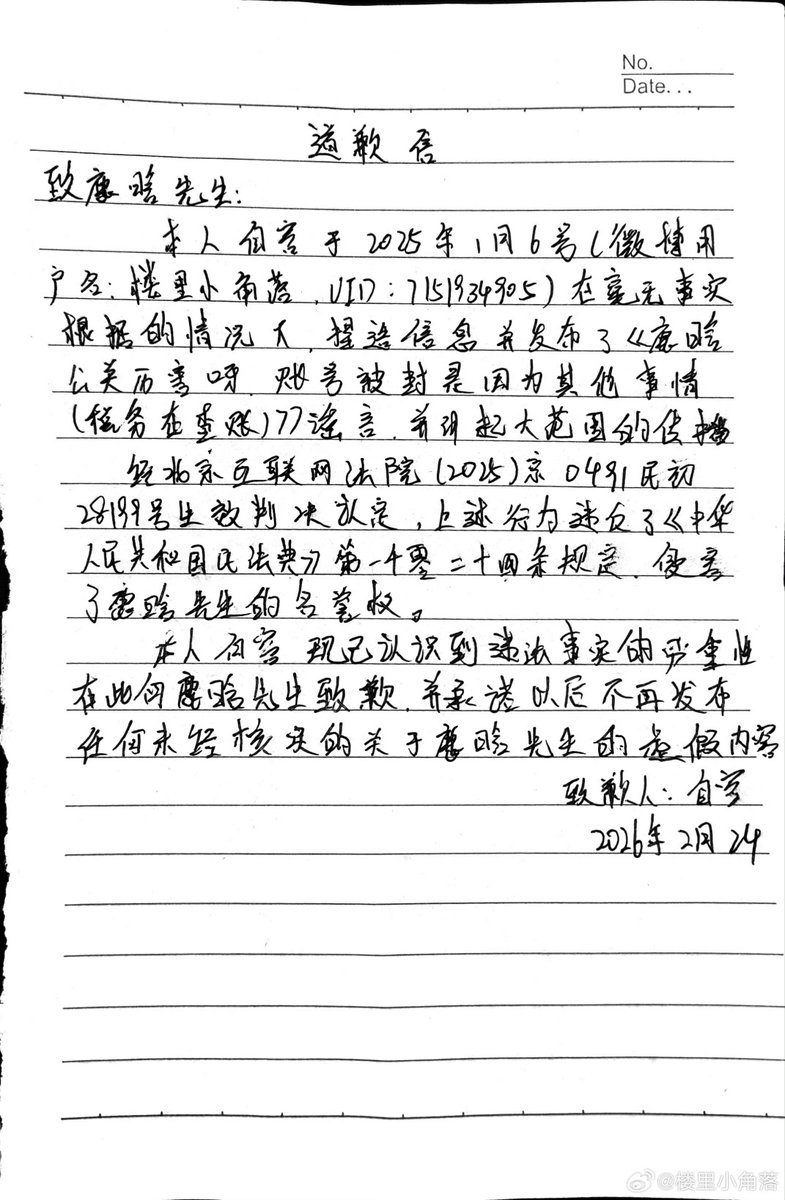 No.
Date...
道歉信
致鹿晗先生:
本人 于2025年1月6号(微博用
户名:楼里小角落,UID:7151934905)在毫无事实
根据的情况下,捏造信息并发布了《鹿晗
公关历害呀,账号被封是因为其他事情
(税务在查账)77谣言,并引起大范围的传播
经北京互联网法院(2025)京0491民初
28199号生效判决认定,上述行为违反了《中华
人民共和国民法典》第一千零二十四条规定,侵害
了鹿晗先生的名誉权。
本人 现已认识到违法事实的严重性
在此向鹿晗先生致歉,并承诺以后不再发布
任何未经核实的关于鹿晗先生的虚假内容
致歉人:
2026年2月24
@楼里小角落